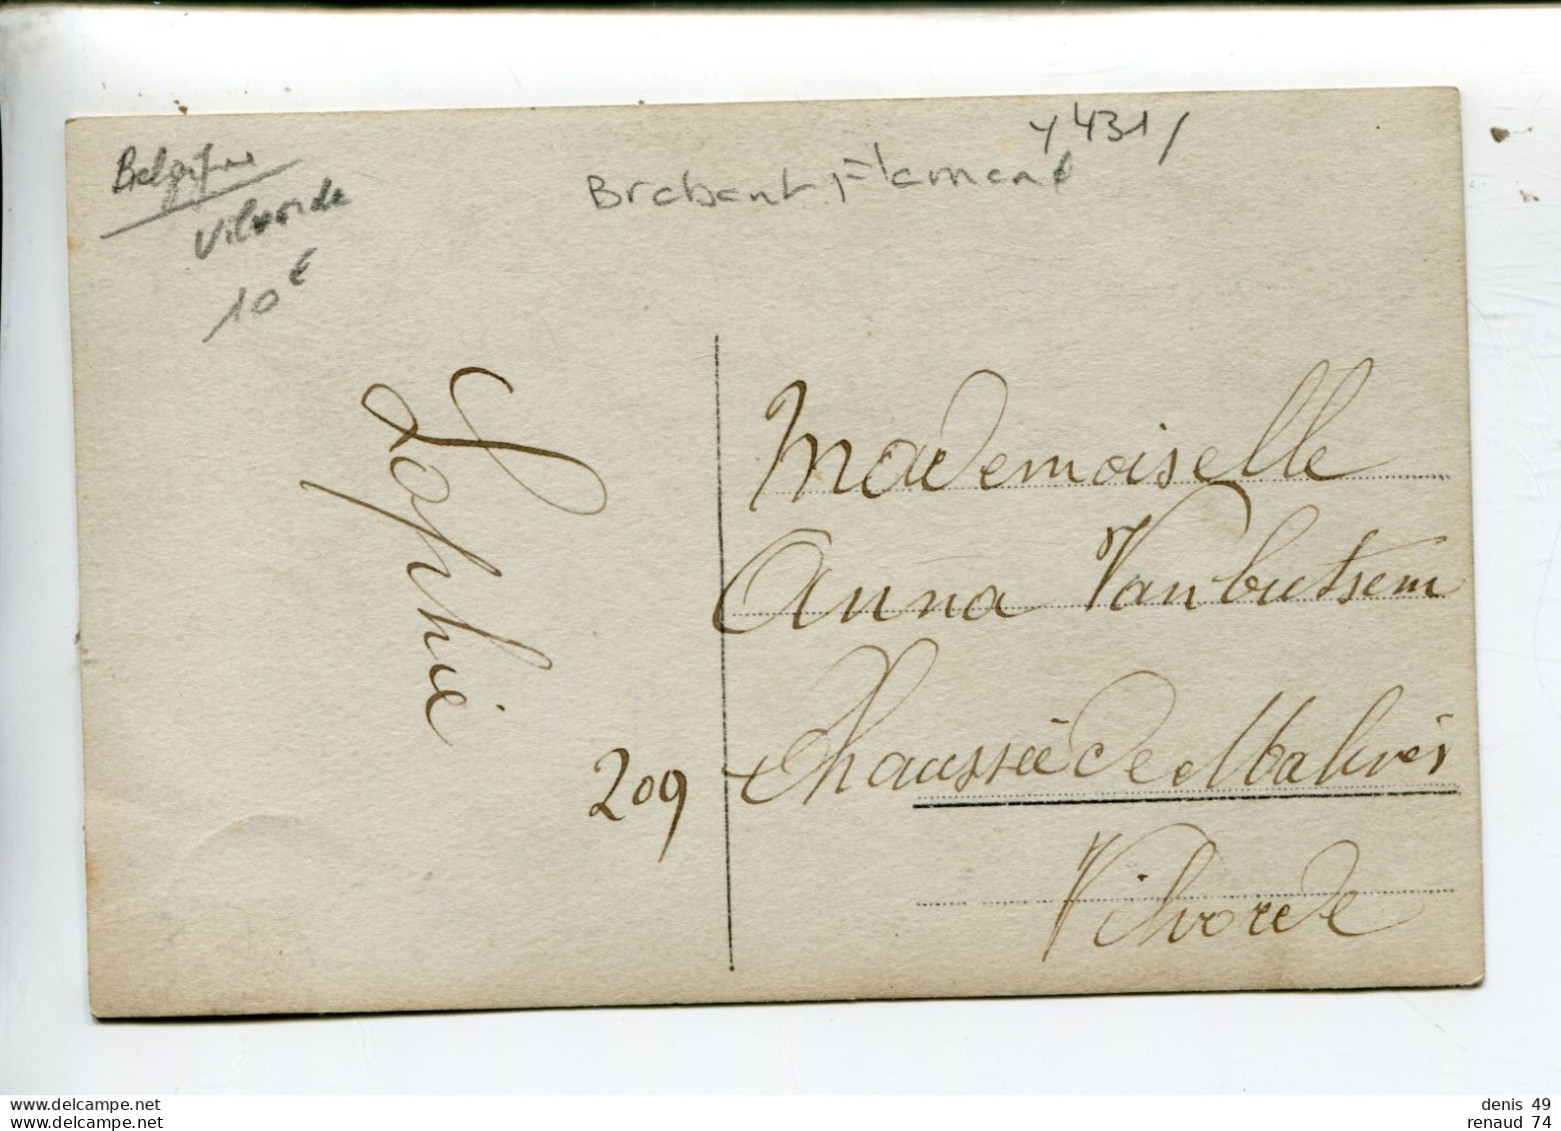 Belgique
Vilvorde
10 €
Brabant Flamand
Y431/
Sophie
Mademoiselle
Anna Vanbutsem
209 Chaussée de Malines
Vilvorde
www.delcampe.net
www.delcampe.net
denis 49
renaud 74